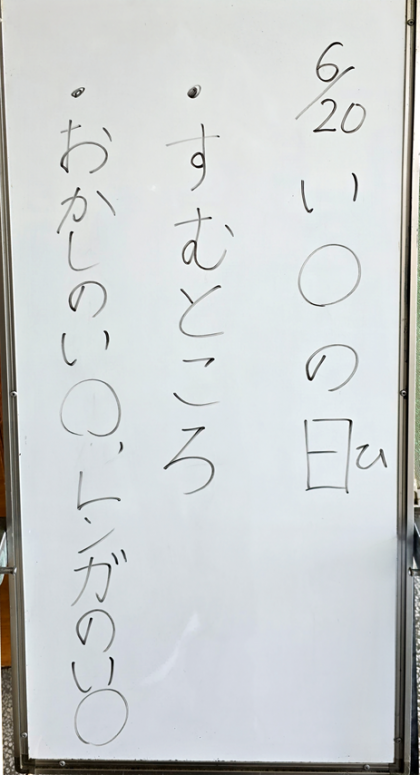 6/20 い〇の日ひ
・すむところ
・おかしのい〇、レンガのい〇